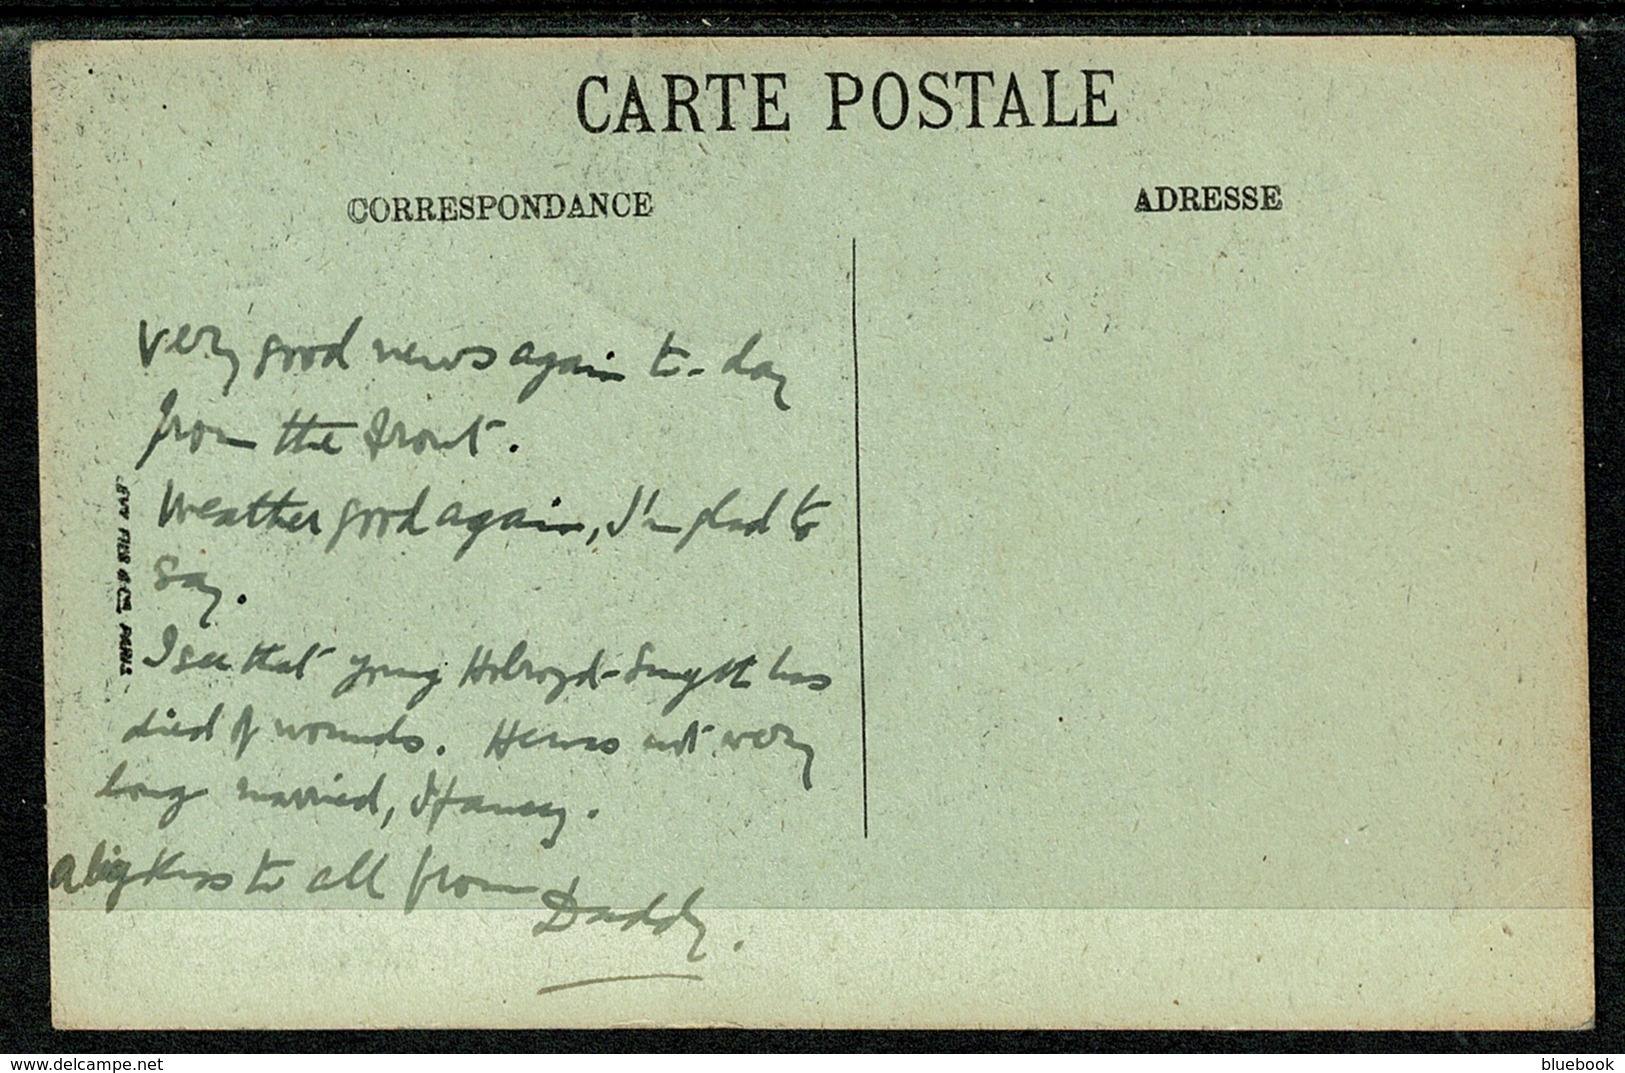 CARTE POSTALE
CORRESPONDANCE
ADRESSE
Very good news again to-day
from the front.
Weather good again, I'm glad to
say.
I see that young Holroyd-Smyth has
died of wounds. He was not very
long married, I fancy.
A big kiss to all from
Daddy.
LEVY FILS & Cie PARIS
delcampe.net
bluebook